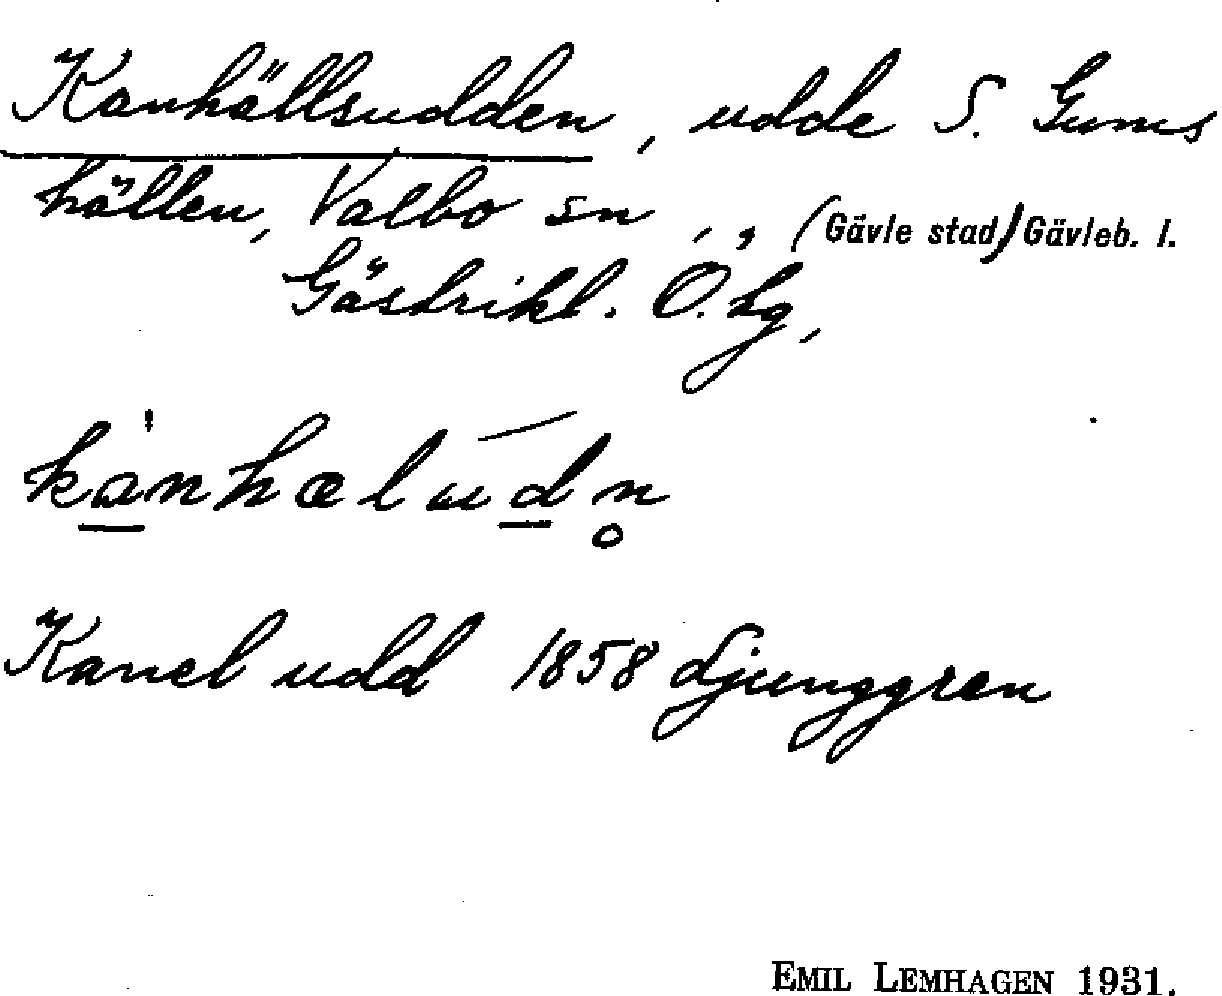 Kanhällsudden, udde S. Gums
hällen, Valbo sn, , (Gävle stad) Gävleb. l.
Gästrikl. Ö. Lg,
kanhæludn̥
Kanel udd 1858 Ljunggren
EMIL LEMHAGEN 1931.